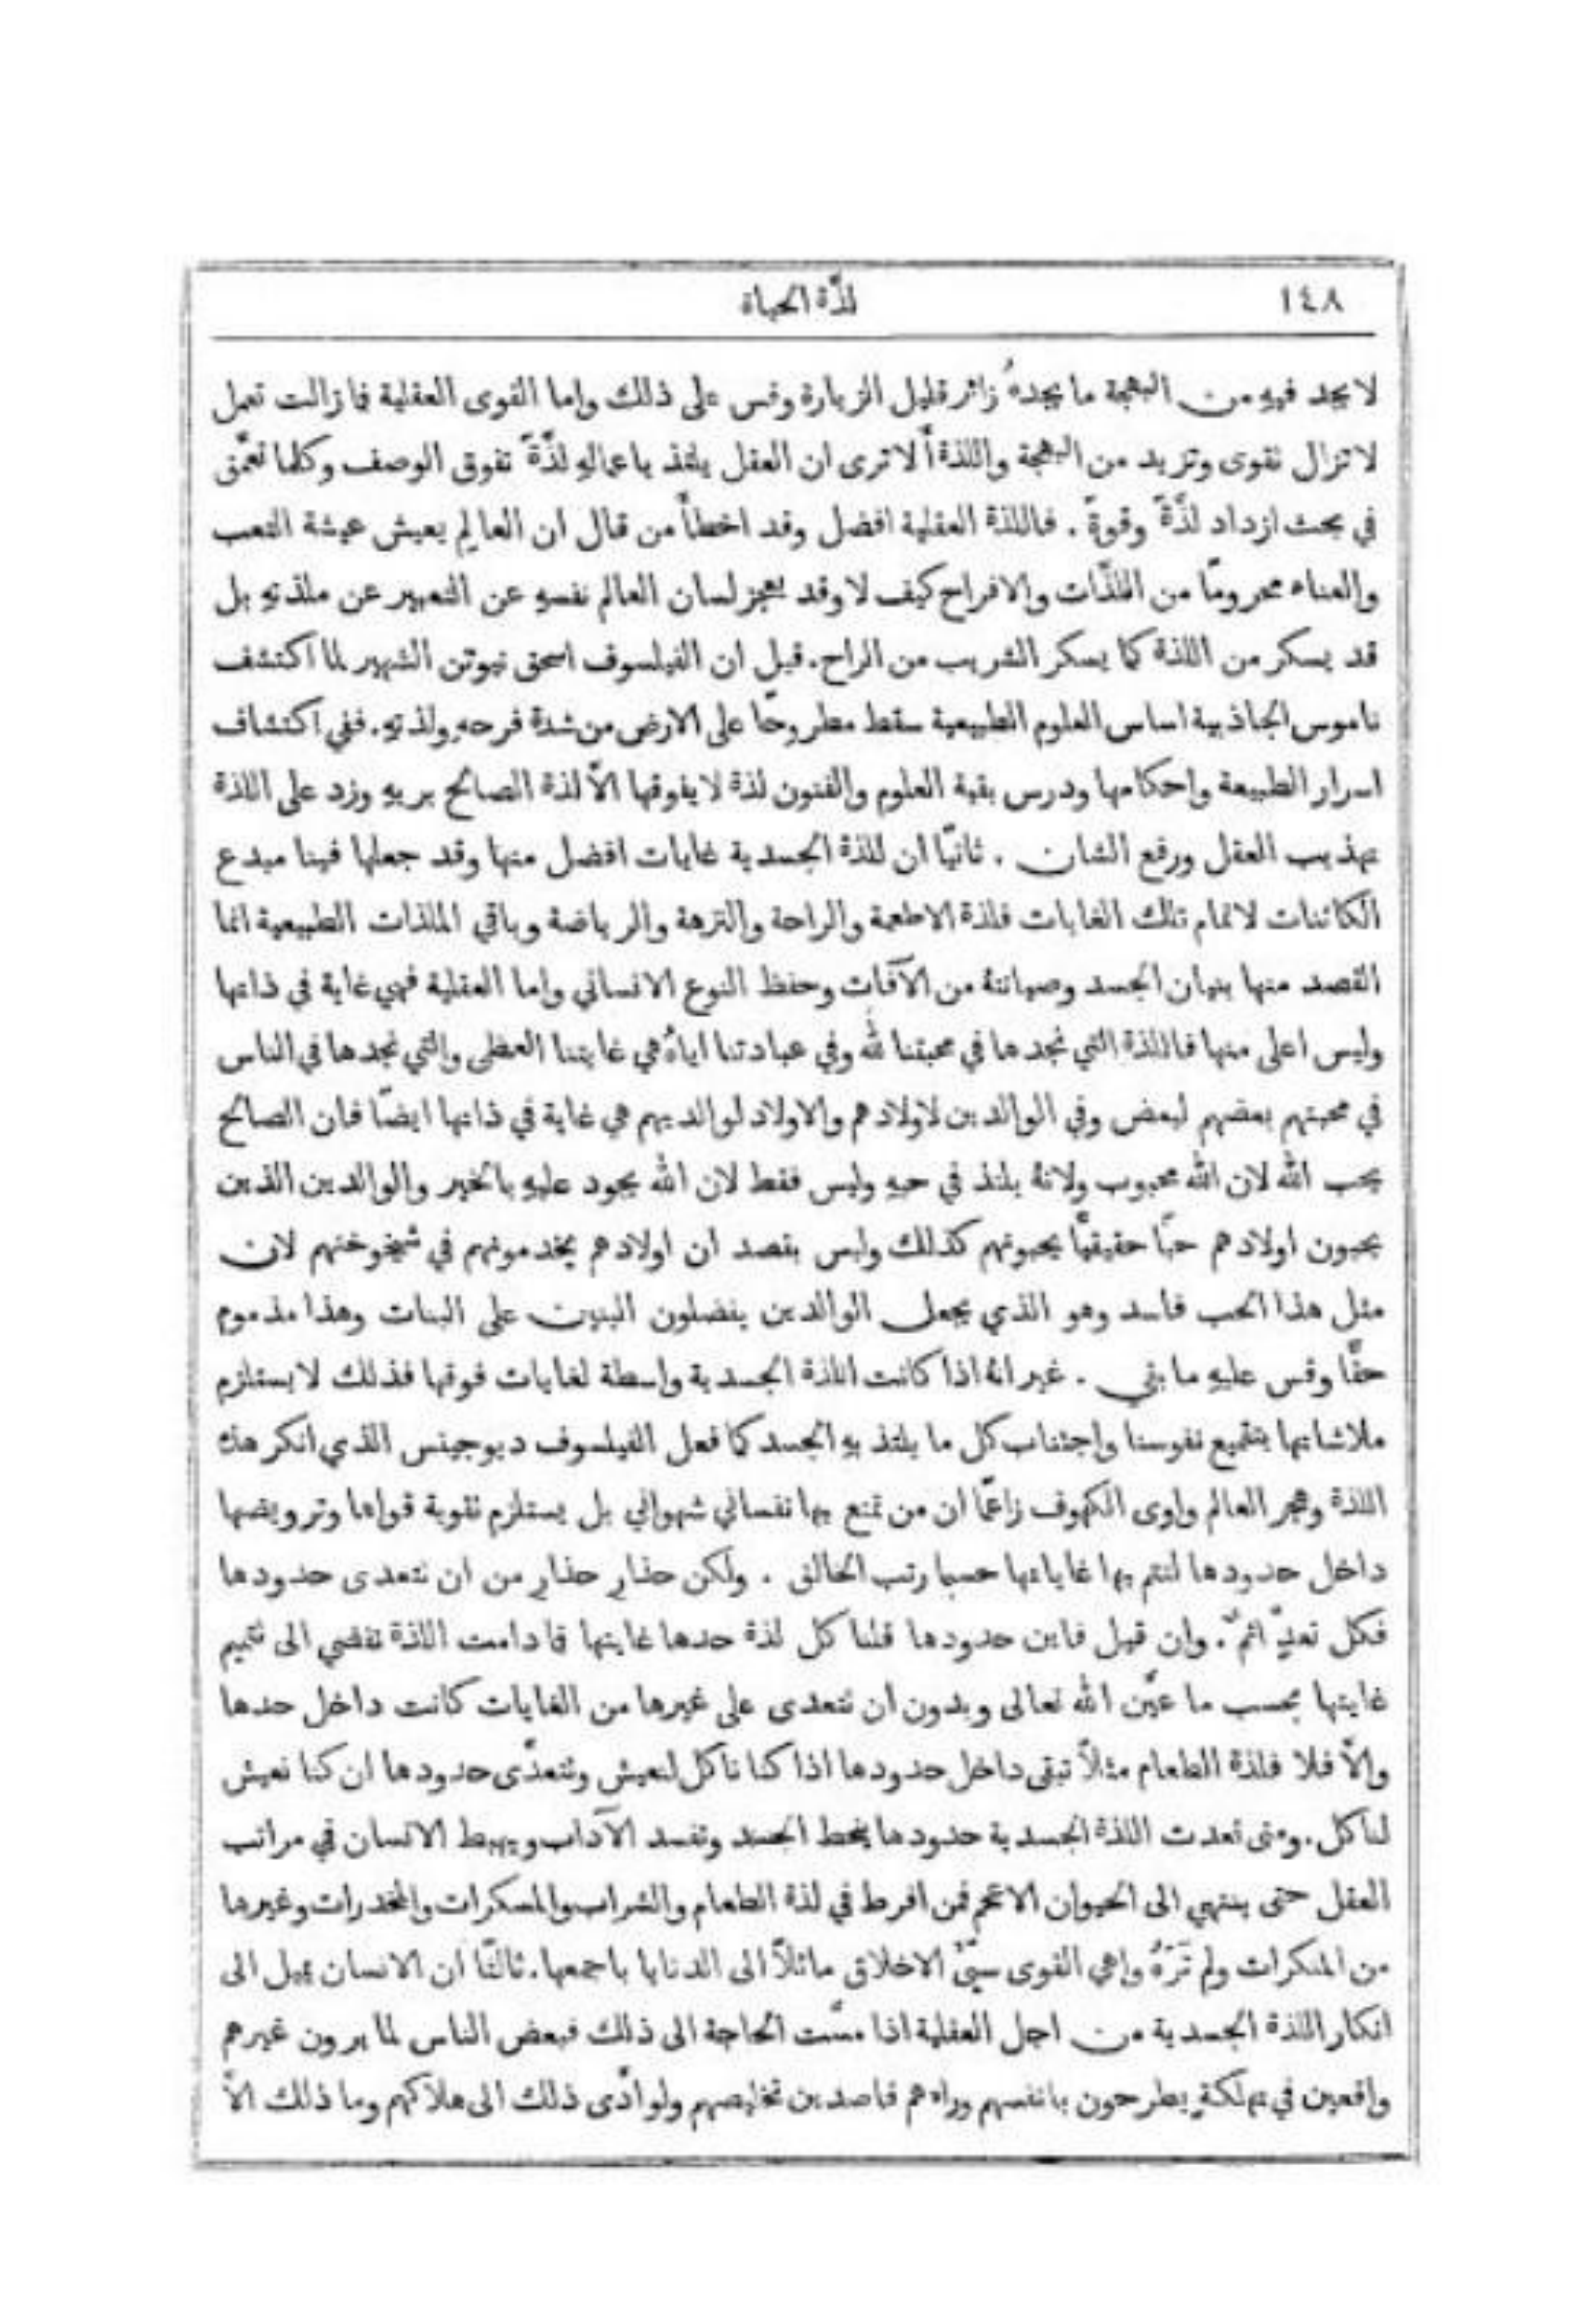 ١٤٨
لذَّة الحياة
لا يجد فيهِ من البهجة ما يجدهُ زائر قليل الزيارة وقس على ذلك واما القوى العقلية فما زالت تعمل
لا تزال تقوى وتزيد من البهجة واللذة ألا ترى ان العقل يلتذ باعمالهِ لذَّةً تفوق الوصف وكلما تعمَّق
في بحث ازداد لذَّةً وقوةً . فاللذة العقلية افضل وقد اخطأ من قال ان العالِم يعيش عيشة التعب
والعناء محرومًا من الملذَّات والافراح كيف لا وقد يعجز لسان العالم نفسهِ عن التعبير عن ملذتهِ بل
قد يسكر من اللذة كما يسكر الشريب من الراح. قيل ان الفيلسوف اسحق نيوتن الشهير لما اكتشف
ناموس الجاذبية اساس العلوم الطبيعية سقط مطروحًا على الارض من شدة فرحهِ ولذتهِ. ففي اكتشاف
اسرار الطبيعة واحكامها ودرس بقية العلوم والفنون لذة لا يفوقها الَّا لذة الصالح بربهِ وزد على اللذة
تهذيب العقل ورفع الشان . ثانيًا ان للذة الجسدية غايات افضل منها وقد جعلها فينا مبدع
الكائنات لاتمام تلك الغايات فلذة الاطعمة والراحة والنزهة والرياضة وباقي الملذات الطبيعية انما
القصد منها بنيان الجسد وصيانتهُ من الآفات وحفظ النوع الانساني واما العقلية فهي غاية في ذاتها
وليس اعلى منها فاللذة التي نجدها في محبتنا لله وفي عبادتنا اياهُ هي غايتنا العظمى والتي نجدها في الناس
في محبتهم بعضهم لبعض وفي الوالدين لاولادهم والاولاد لوالديهم هي غاية في ذاتها ايضًا فان الصالح
يحب الله لان الله محبوب ولانهُ يلتذ في حبهِ وليس فقط لان الله يجود عليهِ بالخير والوالدين الذين
يحبون اولادهم حبًا حقيقيًا يحبونهم كذلك وليس بقصد ان اولادهم يخدمونهم في شيخوختهم لان
مثل هذا الحب فاسد وهو الذي يجعل الوالدين يفضلون البنين على البنات وهذا مذموم
حقًّا وقس عليهِ ما بقي . غير انهُ اذا كانت اللذة الجسدية واسطة لغايات فوقها فذلك لا يستلزم
ملاشاتها بتقميع نفوسنا واجتناب كل ما يلتذ بهِ الجسد كما فعل الفيلسوف ديوجينس الذي انكر هذه
اللذة وهجر العالم واوى الكهوف زاعمًا ان من تمتع بها نفساني شهواني بل يستلزم تقوية قواها وترويضها
داخل حدودها لتتم بها غاياتها حسبما رتب الخالق . ولكن حذارِ حذارِ من ان نتعدى حدودها
فكل تعدٍّ اثمٌ. وان قيل فاين حدودها قلنا كل لذة حدها غايتها فما دامت اللذة تفضي الى تتميم
غايتها بحسب ما عيَّن الله تعالى وبدون ان نتعدى على غيرها من الغايات كانت داخل حدها
والَّا فلا فلذة الطعام مثلًا تبقى داخل حدودها اذا كنا ناكل لنعيش ونتعدَّى حدودها ان كنا نعيش
لناكل. ومتى تعدت اللذة الجسدية حدودها ينحط الجسد وتفسد الآداب ويهبط الانسان في مراتب
العقل حتى ينتهي الى الحيوان الاعجم فمن افرط في لذة الطعام والشراب والمسكرات والمخدرات وغيرها
من المنكرات ولم تَرَهُ واهي القوى سيّئ الاخلاق مائلًا الى الدنايا باجمعها. ثالثًا ان الانسان يميل الى
انكار اللذة الجسدية من اجل العقلية اذا مسَّت الحاجة الى ذلك فبعض الناس لما يرون غيرهم
واقعين في تهلكةٍ يطرحون بانفسهم وراءهم قاصدين تخليصهم ولو ادَّى ذلك الى هلاكهم وما ذلك الَّا